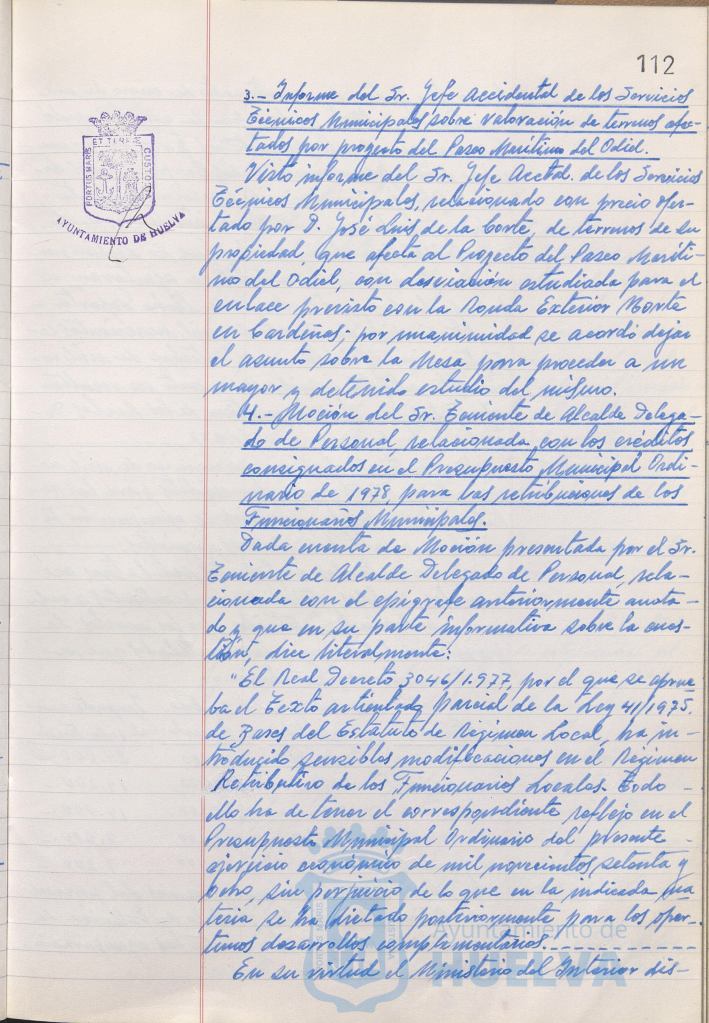 112
3.- Informe del Sr. Jefe Accidental de los Servicios
Técnicos Municipales sobre valoración de terrenos afec-
tados por proyecto del Paseo Marítimo del Odiel.
Visto informe del Sr. Jefe Acctal. de los Servicios
Técnicos Municipales, relacionado con precio ofer-
tado por D. José Luis de la Corte, de terrenos de su
propiedad, que afecta al Proyecto del Paseo Maríti-
mo del Odiel, con desviación estudiada para el
enlace previsto con la Ronda Exterior Norte
en Cardeñas; por unanimidad se acordó dejar
el asunto sobre la Mesa para proceder a un
mayor y detenido estudio del mismo.
4.- Moción del Sr. Teniente de Alcalde Delega-
do de Personal, relacionada con los créditos
consignados en el Presupuesto Municipal Ordi-
nario de 1978, para las retribuciones de los
Funcionarios Municipales.
Dada cuenta de Moción presentada por el Sr.
Teniente de Alcalde Delegado de Personal, rela-
cionada con el epígrafe anteriormente anota-
do y que en su parte informativa sobre la cues-
tión, dice literalmente:
"El Real Decreto 3046/1.977, por el que se aprue-
ba el Texto articulado parcial de la Ley 41/1975,
de Bases del Estatuto de Régimen Local, ha in-
troducido sensibles modificaciones en el Régimen
Retributivo de los Funcionarios Locales. Todo -
ello ha de tener el correspondiente reflejo en el
Presupuesto Municipal Ordinario del presente -
ejercicio económico de mil novecientos setenta y
ocho, sin perjuicio de lo que en la indicada ma
teria se ha dictado posteriormente para los opor-
tunos desarrollos complementarios.----------
En su virtud el Ministerio del Interior dis-
PORTUS MARIS
ET TERRAE
CUSTODIA
AYUNTAMIENTO DE HUELVA
Ayuntamiento de
HUELVA